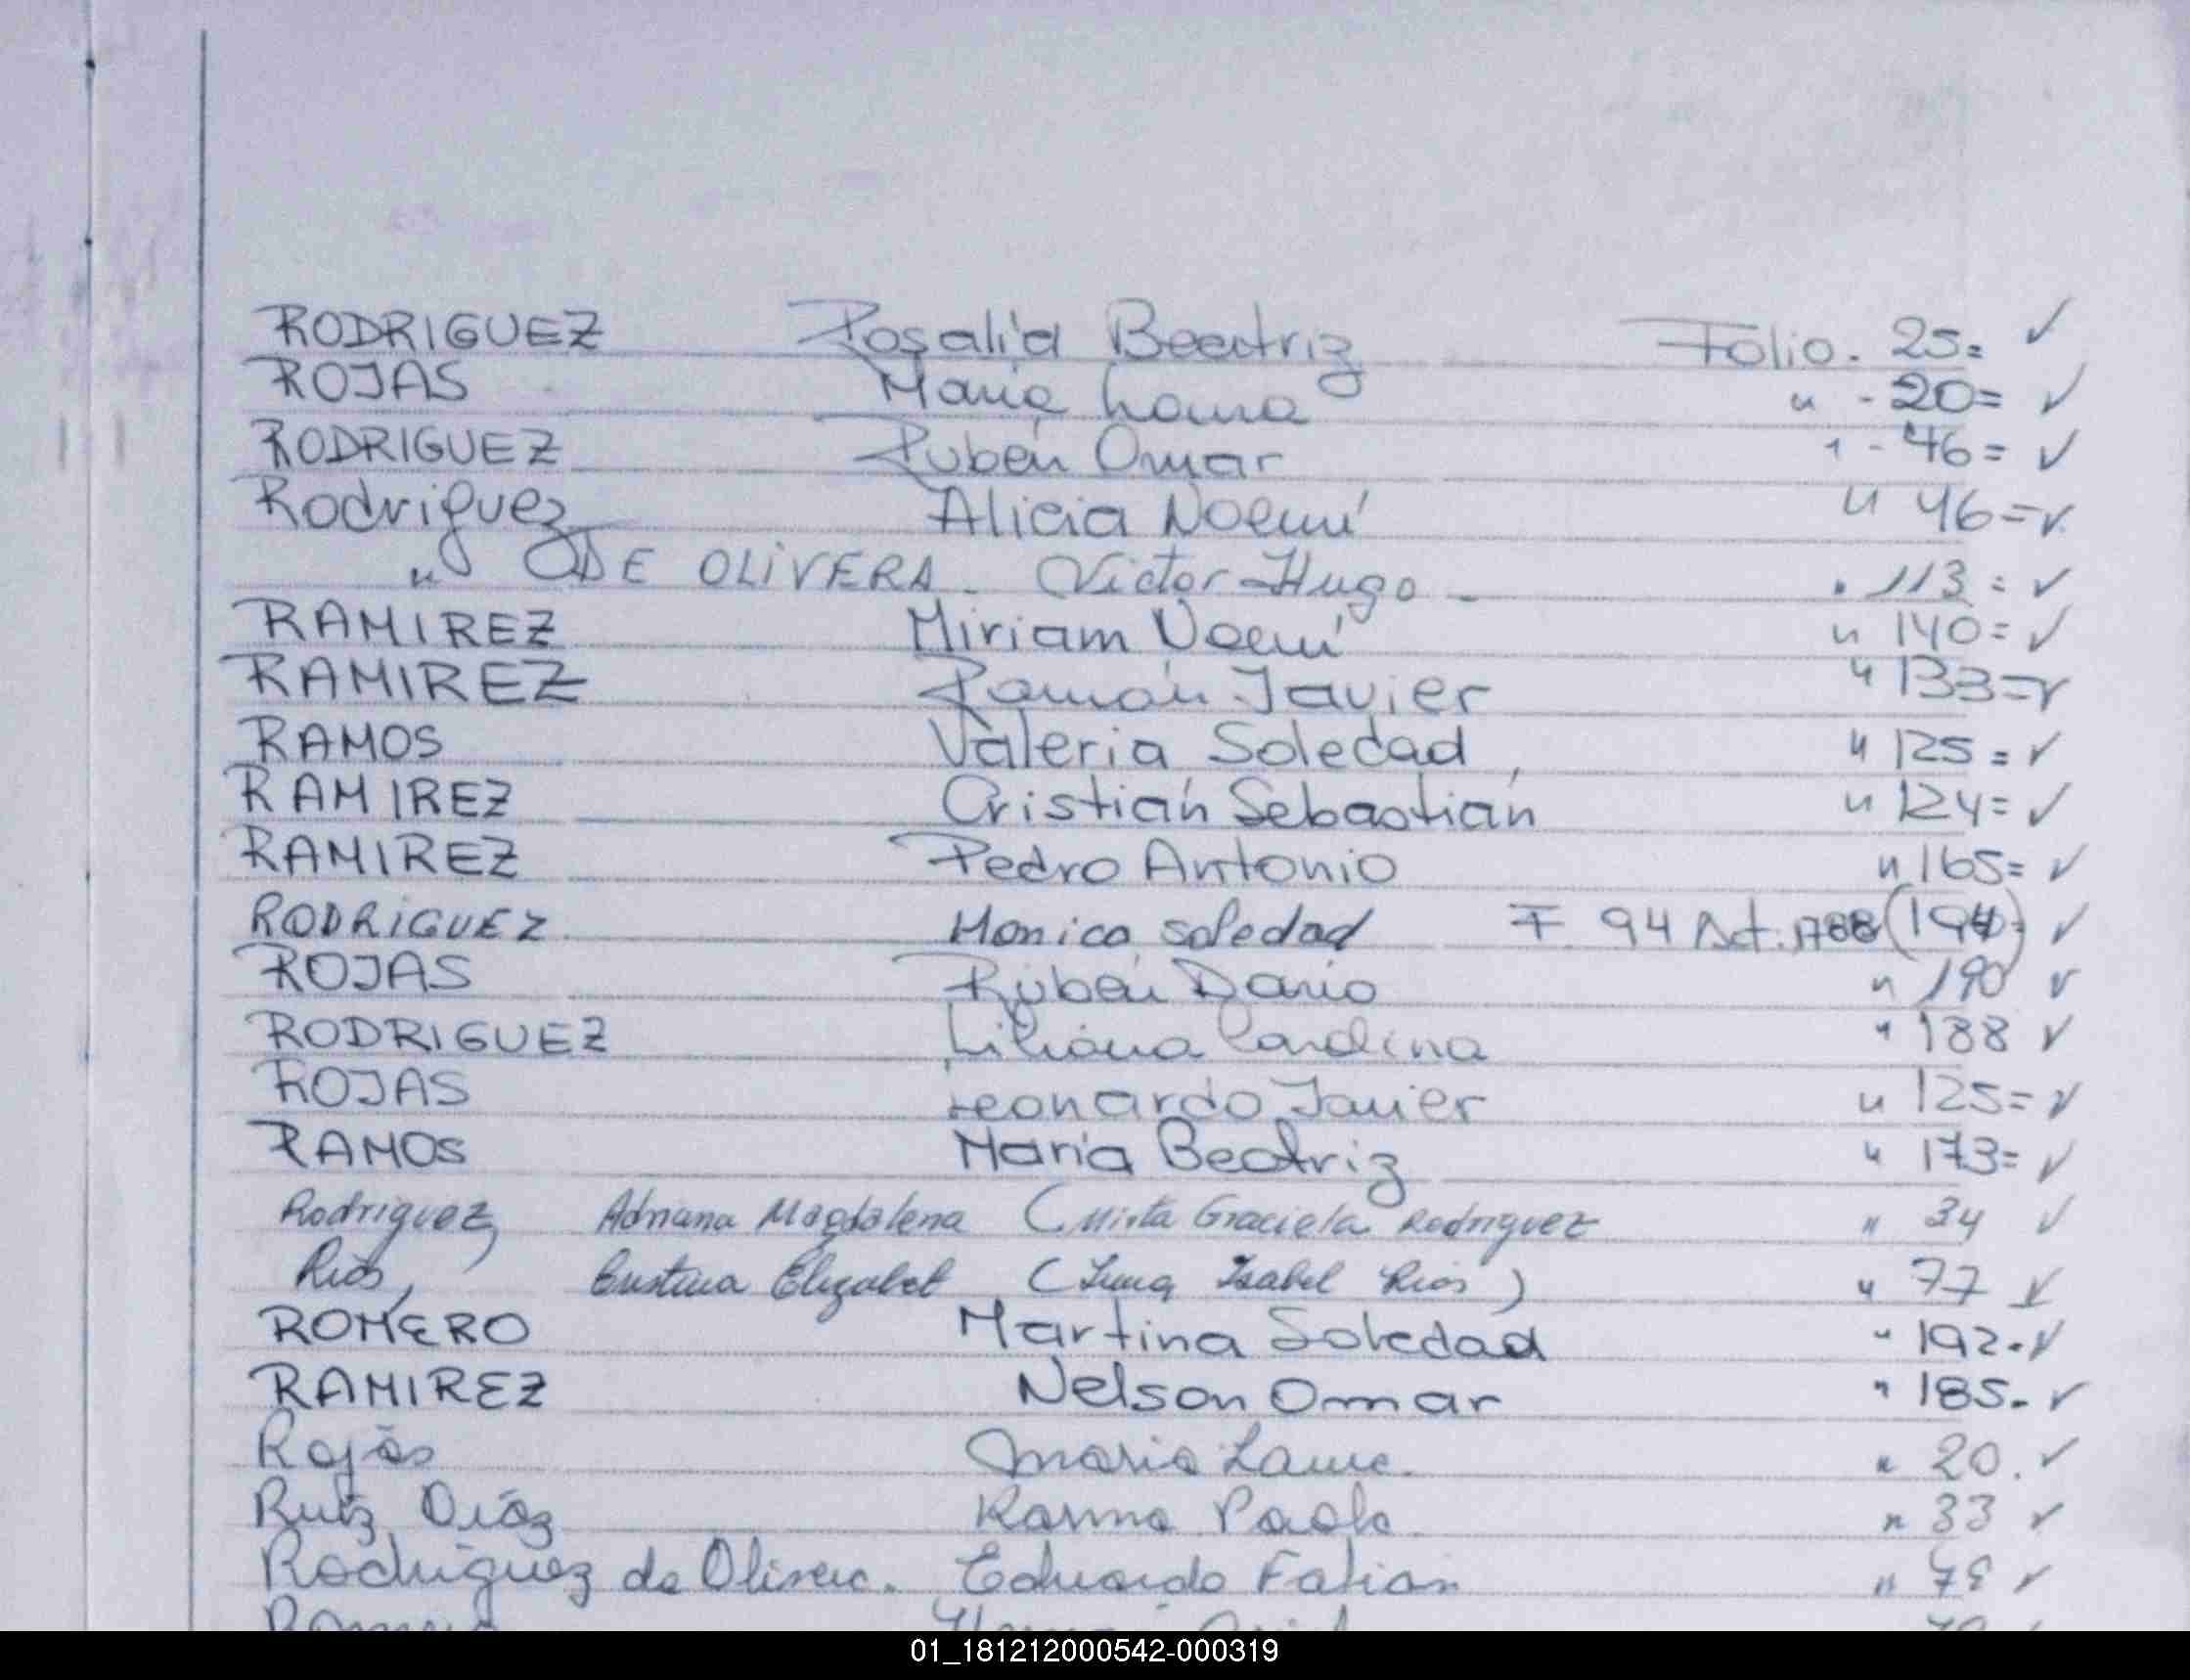 RODRIGUEZ Rosalia Beatriz Folio. 25=
ROJAS Maria Laura " - 20=
RODRIGUEZ Rubén Omar " - 46=
Rodriguez Alicia Noemí " 46=
" DE OLIVERA - Victor Hugo - " 113=
RAMIREZ Miriam Noemí " 140=
RAMIREZ Ramón Javier " 133=
RAMOS Valeria Soledad " 125=
RAMIREZ Cristián Sebastián " 124=
RAMIREZ Pedro Antonio " 165=
RODRIGUEZ Monica soledad F. 94 Act.
ROJAS Rubén Dario " 190
RODRIGUEZ Liliana Carolina " 188
ROJAS Leonardo Javier " 125=
RAMOS María Beatriz " 173=
Rodriguez, Adriana Magdalena (Mirta Graciela Rodriguez " 34
Rios, Cristina Elizabet ( Isabel Rios) " 77
ROMERO Martina Soledad " 192.
RAMIREZ Nelson Omar " 185.
Rojas Maria Laura. " 20.
Ruiz Diaz Karina Paola " 33
Rodriguez de Olivera. Eduardo Fabian "
01_181212000542-000319